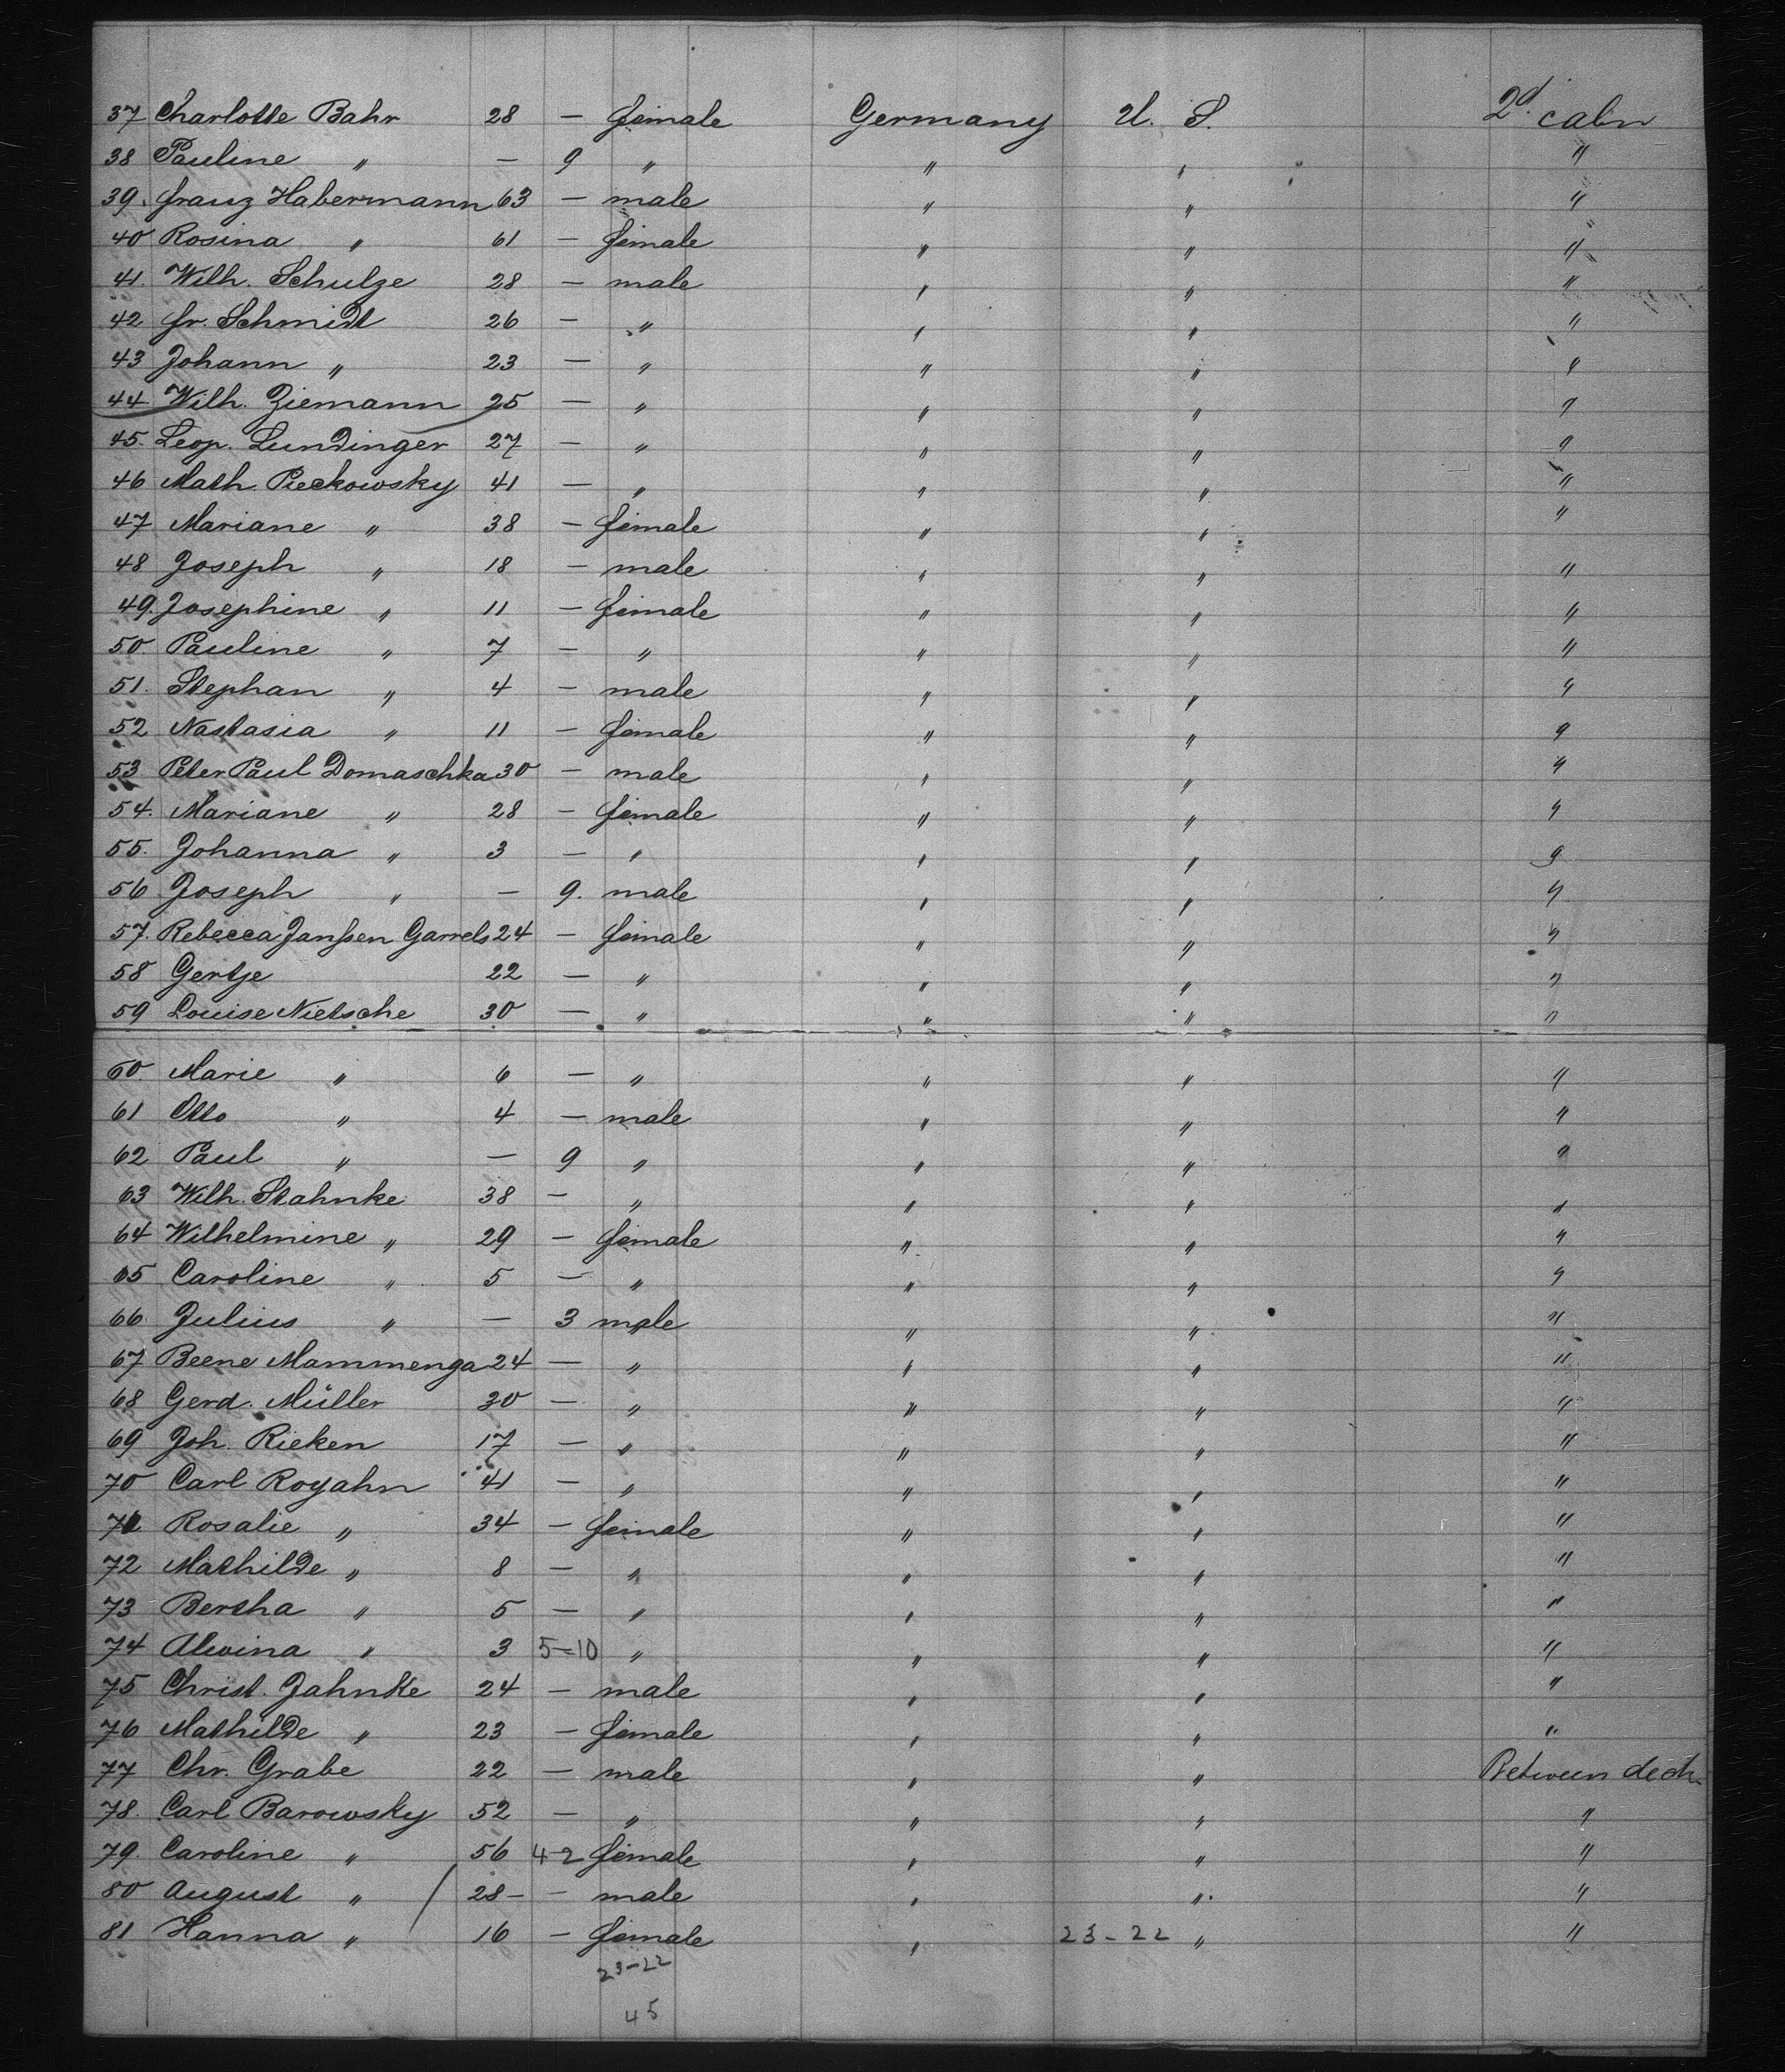 37 Charlotte Bahr 28 – female Germany U. S. 2d. cabin
38 Pauline " – 9 " " " "
39. Franz Habermann 63 – male " " "
40 Rosina " 61 – female " " "
41. Wilh. Schulze 28 – male " " "
42 Fr. Schmidt 26 – " " " "
43 Johann " 23 – " " " "
44. Wilh. Ziemann 25 – " " " "
45. Leop. Lundinger 27 – " " " "
46 Math. Pieckowsky 41 – " " " "
47 Mariane " 38 – female " " "
48 Joseph " 18 – male " " "
49. Josephine " 11 – female " " "
50. Pauline " 7 – " " " "
51. Stephan " 4 – male " " "
52 Nastasia " 11 – female " " "
53 Peter Paul Domaschka 30 – male " " "
54. Mariane " 28 – female " " "
55. Johanna " 3 – " " " "
56 Joseph " – 9. male " " "
57. Rebecca Janssen Garrels 24 – female " " "
58 Gertje 22 – " " " "
59 Louise Nietsche 30 – " " " "
60. Marie " 6 – " " " "
61 Otto " 4 – male " " "
62 Paul " – 9 " " " "
63 Wilh. Stahnke 38 – " " " "
64 Wilhelmine " 29 – female " " "
65 Caroline " 5 – " " " "
66 Julius " – 3 male " " "
67 Beene Mammenga 24 – " " " "
68 Gerd. Müller 30 – " " " "
69 Joh. Rieken 17 – " " " "
70 Carl Royahn 41 – " " " "
71 Rosalie " 34 – female " " "
72 Mathilde " 8 – " " " "
73 Bertha " 5 – " " " "
74 Alwina " 3 5–10 " " " "
75 Christ. Jahnke 24 – male " " "
76 Mathilde " 23 – female " " "
77 Chr. Grabe 22 – male " " Between deck
78. Carl Barowsky 52 – " " " "
79. Caroline " 56 4–2 female " " "
80 August " 28 – – male " " "
81 Hanna " 16 – female " 23–22 " "
23–22
45